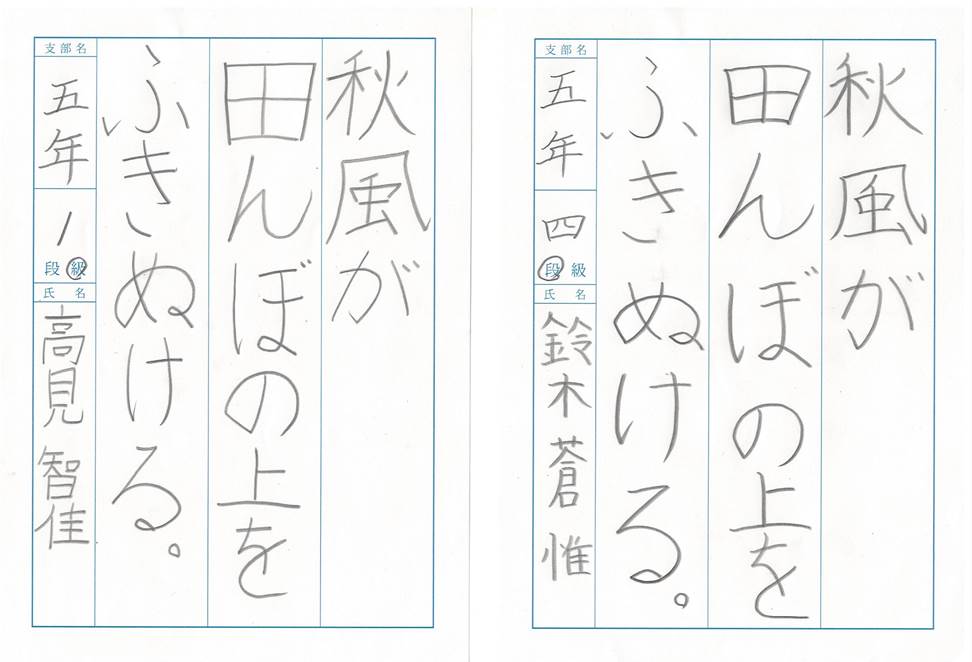 秋風が
田んぼの上を
ふきぬける。
支部名
五年
1
段級
氏名
高見 智佳
秋風が
田んぼの上を
ふきぬける。
支部名
五年
四
段級
氏名
鈴木蒼惟